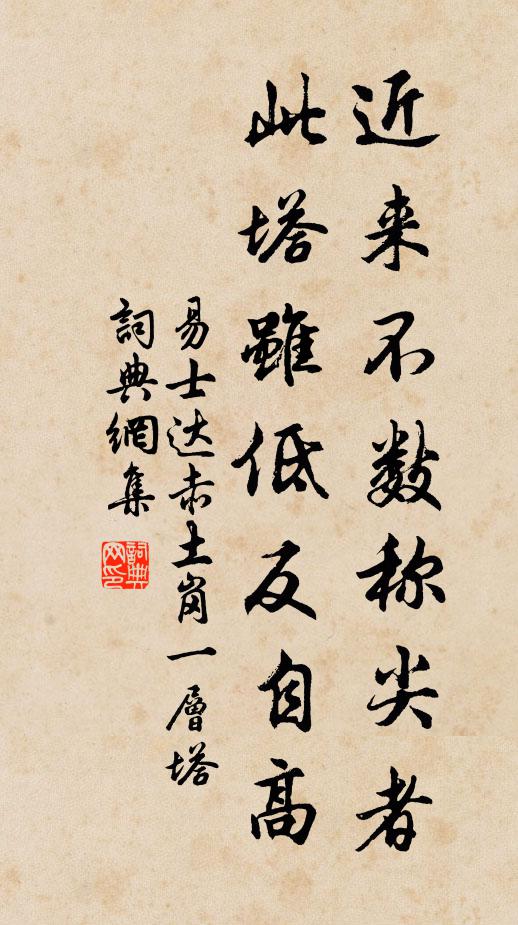 近来不数称尖者
此塔雖低反自高
易士达赤土岗一層塔
詞典網集
詞典网印